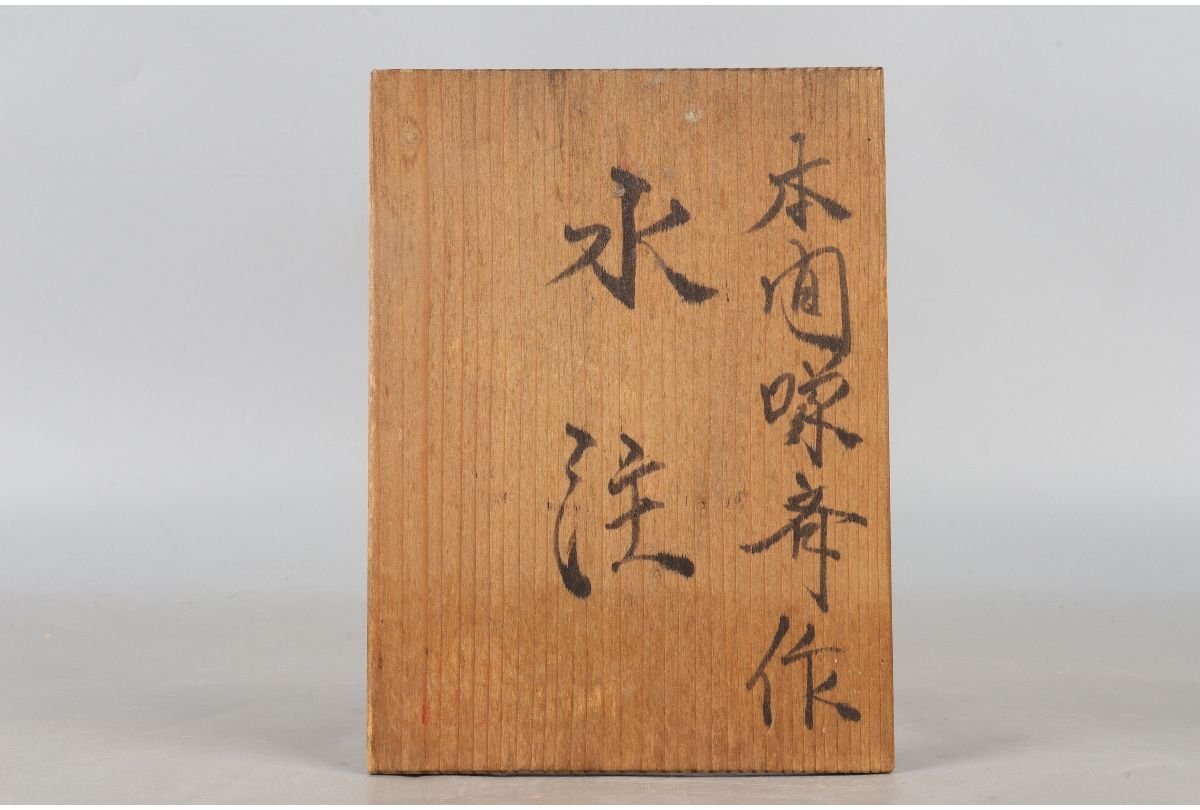 本間琢斎作
水注